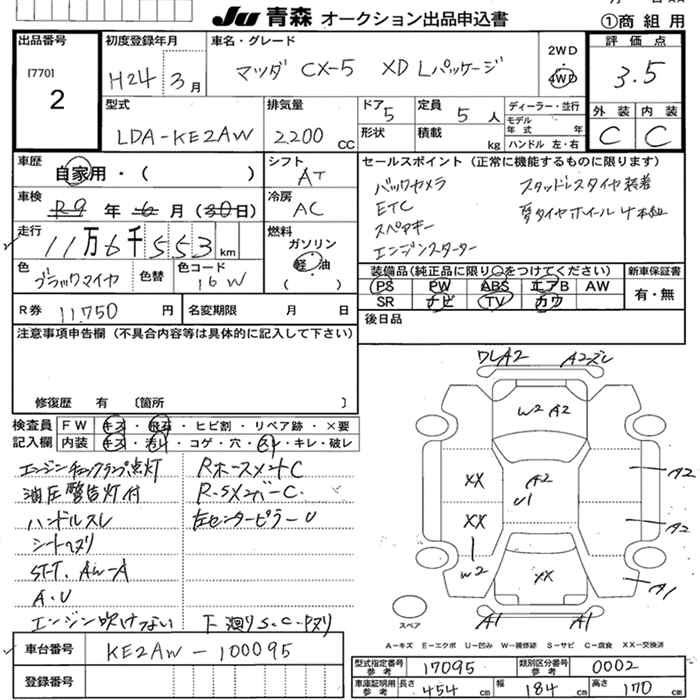 JU 青森 オークション出品申込書
①商組用
出品番号
[770]
2
初度登録年月
H24 3月
車名・グレード
マツダ CX-5 XD Lパッケージ
2WD
4WD
評価点
3.5
型式
LDA-KE2AW
排気量
2.200 CC
ドア 5
形状
定員 5人
積載 kg
ディーラー・並行
モデル年式 年式
ハンドル 左・右
外装 内装
C C
車歴
自家用・( )
車検
R9 年 6 月 (30日)
走行
11万6千553 km
色
ブラックマイカ
色替
色コード
16W
シフト
AT
冷房
AC
燃料
ガソリン
軽油
( )
セールスポイント(正常に機能するものに限ります)
バックカメラ スタッドレスタイヤ装着
ETC 夏タイヤホイール4本組
スペアキー
エンジンスターター
装備品(純正品に限り○をつけてください)
PS PW ABS エアB AW
SR ナビ TV カワ
新車保証書
有・無
R券 11.750 円
名変期限 月 日
後日品
注意事項申告欄(不具合内容等は具体的に記入して下さい)
修復歴 有 〔箇所 〕
検査員記入欄
FW キズ・飛石・ヒビ割・リペア跡・×要
内装 キズ・汚れ・コゲ・穴・スレ・キレ・破レ
エンジンチェックランプ点灯 RホースメントC
油圧警告灯付 R-SメンバーC.
ハンドルスレ 左センターピラーU
シートヘタリ
ST-T. AW-A
A.U
エンジン吹けない 下廻りS.C.Pヌリ
ワレA2 A2ズレ
W2 A2
XX A2 A2
U1
XX A2
W2 XX A1
A1 A1
スペア
A−キズ E−エクボ U−凹み W−補修跡 S−サビ C−腐食 XX−交換済
車台番号
KE2AW-100095
登録番号
型式指定番号 参考 17095
類別区分番号 参考 0002
車庫証明用 参考 長さ 454 cm 幅 184 cm 高さ 170 cm